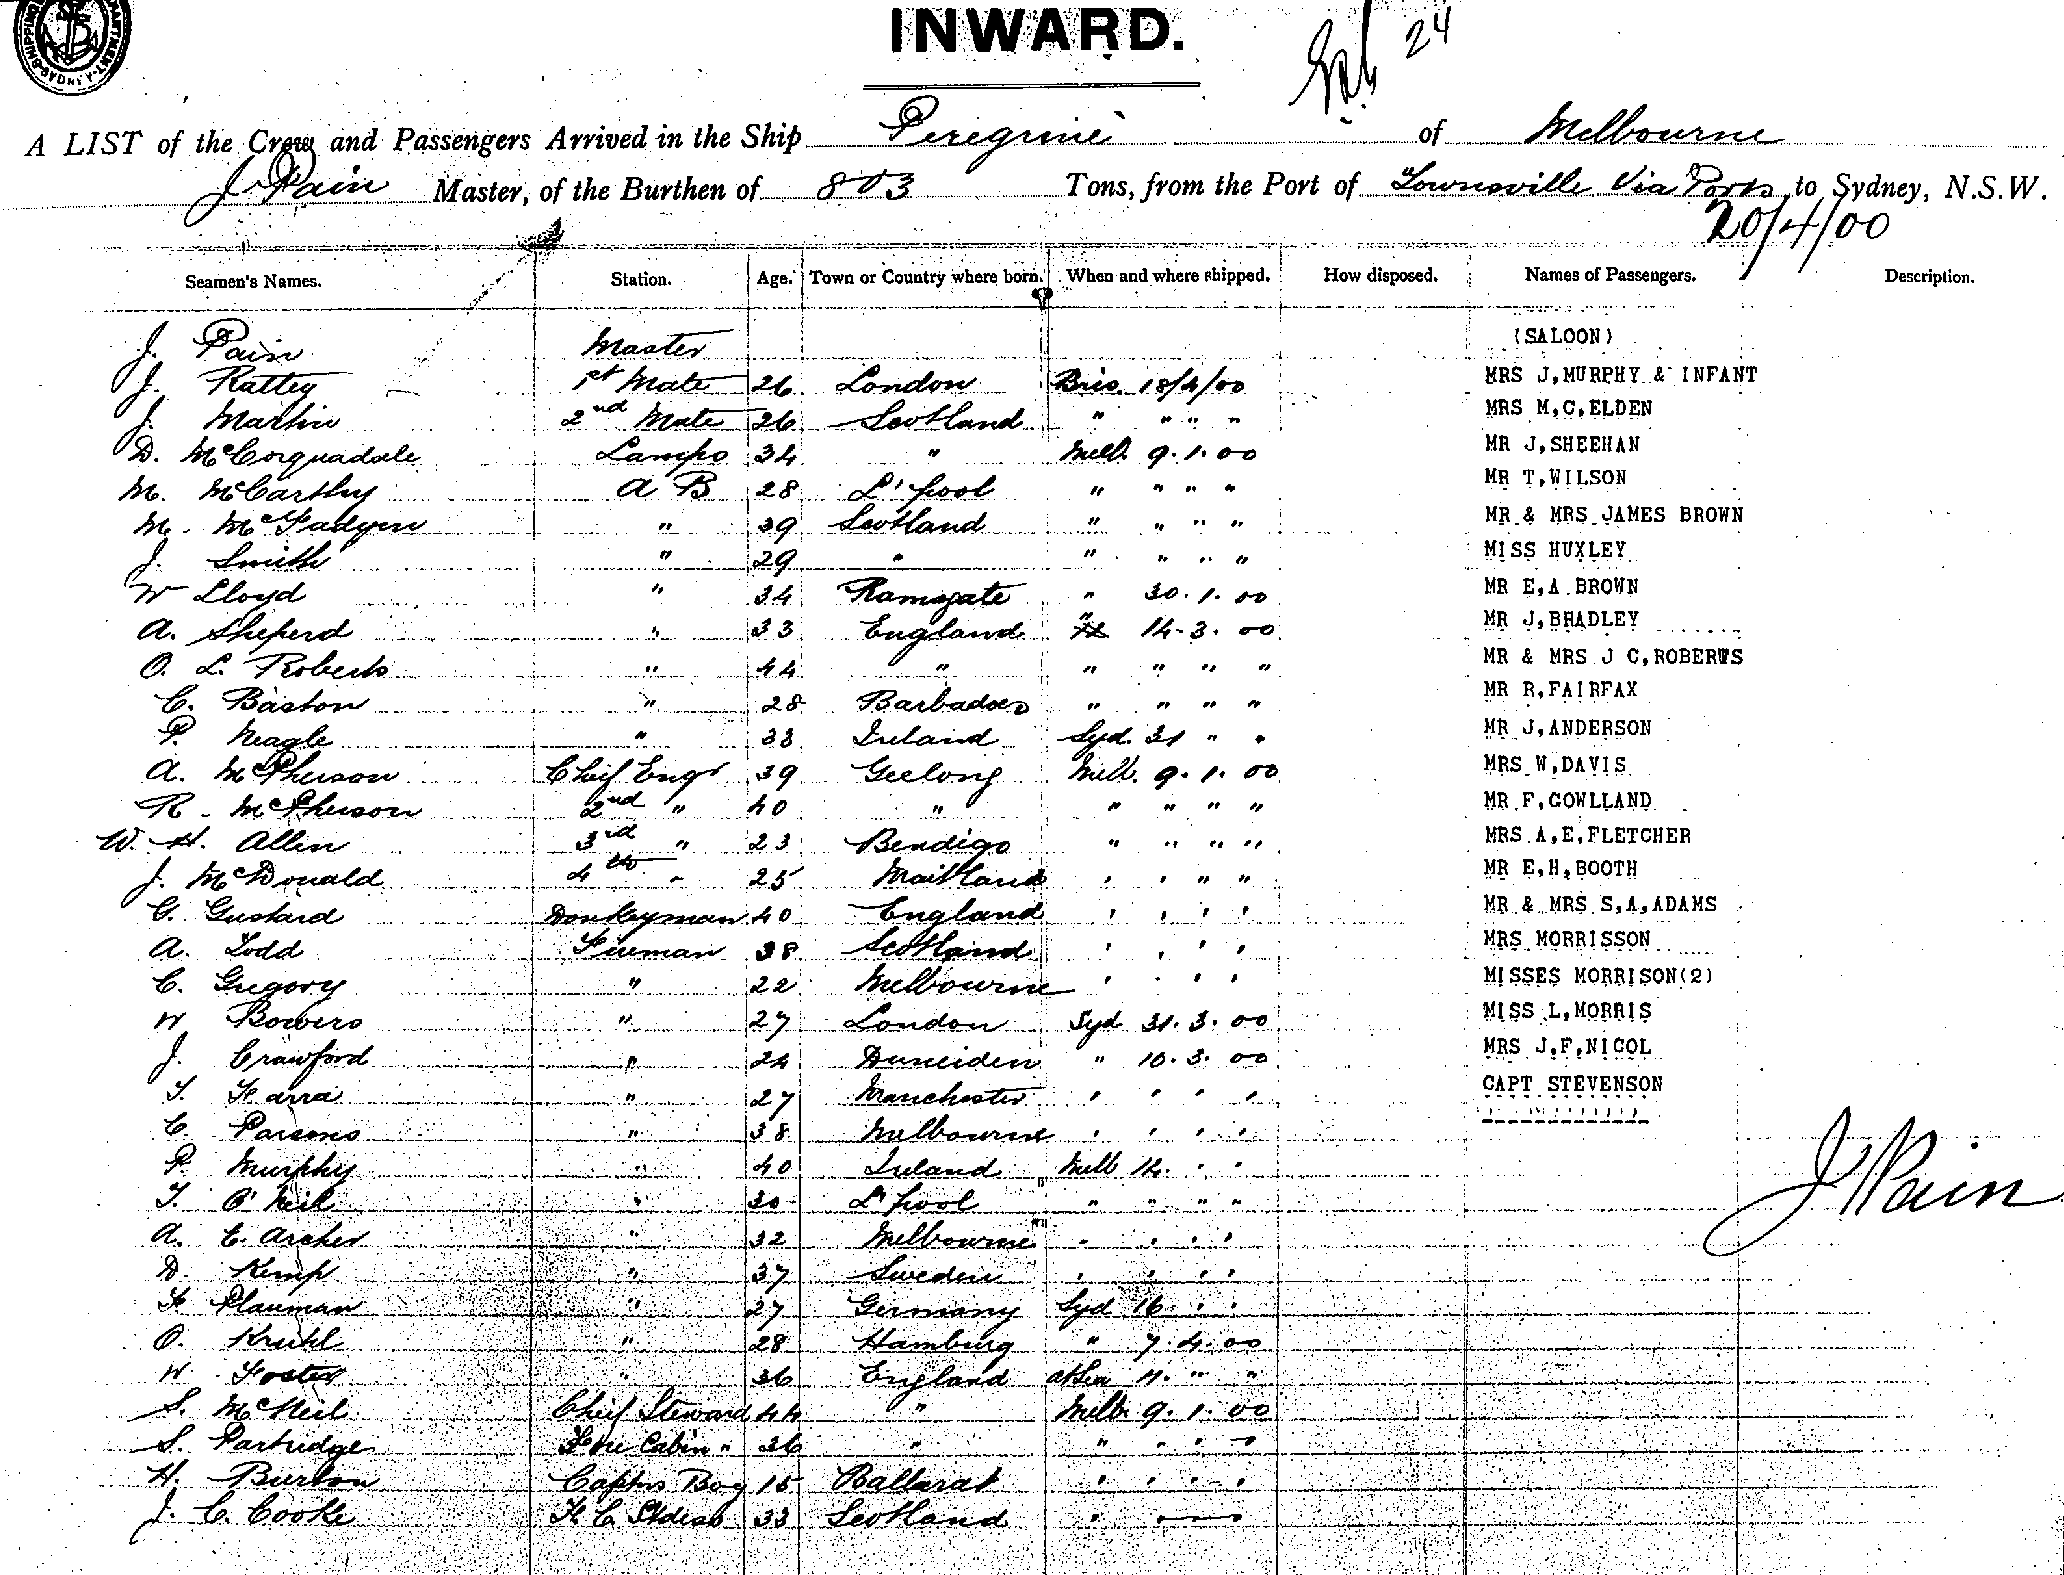 INWARD.
24
A LIST of the Crew and Passengers Arrived in the Ship Peregrine of Melbourne
J Pain Master, of the Burthen of 803 Tons, from the Port of Townsville Via Ports to Sydney, N.S.W.
20/4/00
Seamen's Names. Station. Age. Town or Country where born. When and where shipped. How disposed. Names of Passengers. Description.
J. Pain Master (SALOON)
J. Rattey 1st Mate 26 London Bris. 18/4/00 MRS J,MURPHY & INFANT
J. Martin 2nd Mate 26 Scotland " " " " MRS M,C,ELDEN
D. McCorquadale Lamps 34 " Melb. 9.1.00 MR J,SHEEHAN
M. McCarthy A B 28 L'pool " " " " MR T,WILSON
M. McFadyen " 39 Scotland " " " " MR & MRS JAMES BROWN
J. Smith " 29 " " " " " MISS HUXLEY
W Lloyd " 34 Ramsgate " 30.1.00 MR E,A BROWN
A. Sheperd " 33 England " 14.3.00 MR J,BRADLEY
O. L. Roberts " 44 " " " " " MR & MRS J C,ROBERTS
C. Baston " 28 Barbadoes " " " " MR R,FAIRFAX
P. Neagle " 33 Ireland Syd. 31 " " MR J,ANDERSON
A. McPherson Chief Engr 39 Geelong Melb. 9.1.00 MRS W,DAVIS
R. McPherson 2nd " 40 " " " " " MR F,GOWLLAND
W. H. Allen 3rd " 23 Bendigo " " " " MRS A,E,FLETCHER
J. McDonald 4th " 25 Maitland " " " " MR E,H,BOOTH
G. Gustard Donkeyman 40 England " " " " MR & MRS S,A,ADAMS
A. Todd Fireman 38 Scotland " " " " MRS MORRISSON
C. Gregory " 22 Melbourne " " " " MISSES MORRISON(2)
W Bowers " 27 London Syd 31.3.00 MISS L,MORRIS
J. Crawford " 24 Duneiden " 10.3.00 MRS J,F,NICOL
T. Farra " 27 Manchester " " " " CAPT STEVENSON
C. Parsons " 38 Melbourne " " " "
P. Murphy " 40 Ireland Melb 14. " " J Pain
T. O'Neil " 30 L'pool " " " "
A. E. Archer " 32 Melbourne " " " "
D. Kemp " 37 Sweden " " " "
F Plauman " 27 Germany Syd 16 " "
O. Kruhl " 28 Hamburg " 7.4.00
W Foster " 36 England at Sea 11. " "
S. McNeil Chief Steward 44 " Melb. 9.1.00
S. Partridge Fore Cabin " 36 " " " " "
H. Burton Capt's Boy 15 Ballarat " " " "
J. C. Cooke F C Stdess 33 Scotland "